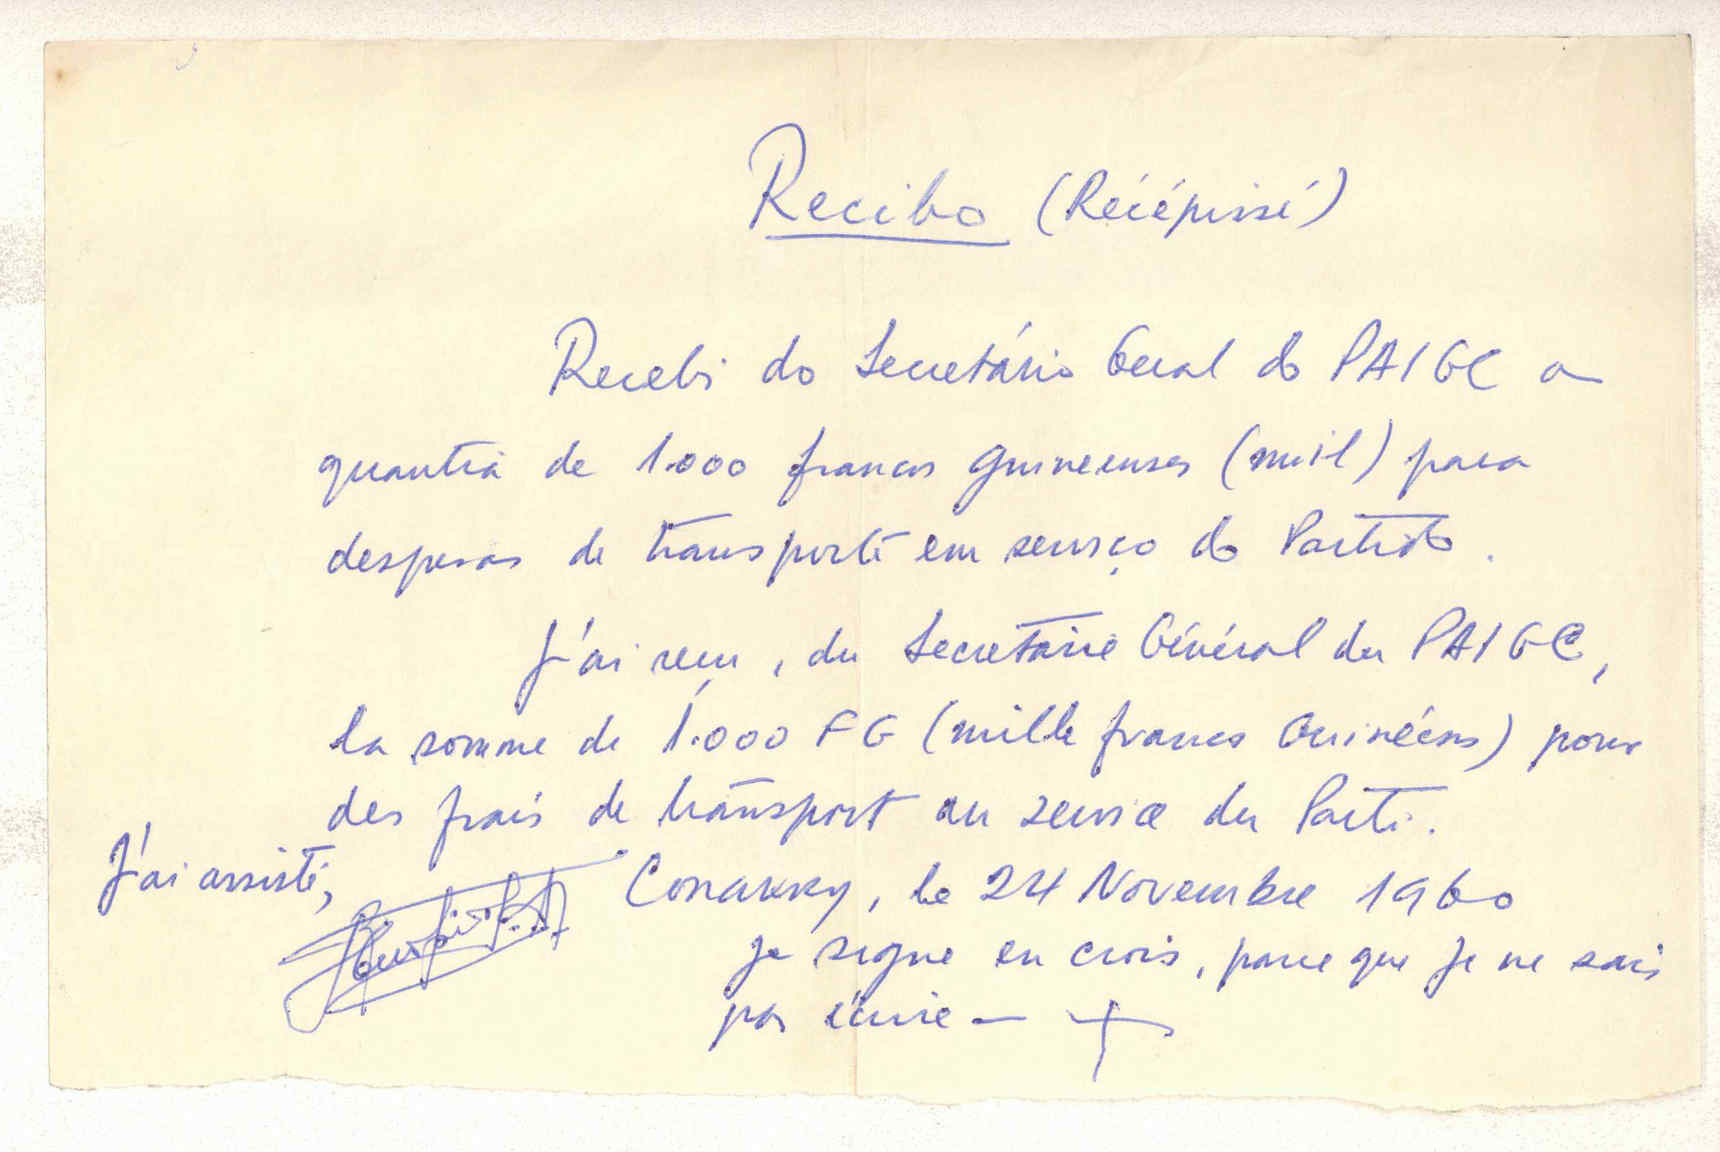 Recibo (Récépissé)
Recebi do Secretário Geral do PAIGC a
quantia de 1.000 francos guineenses (mil) para
despesas de transporte em serviço do Partido.
J'ai reçu, du Secretaire Général du PAIGC,
la somme de 1.000 FG (mille francs Guinéens) pour
des frais de transport au service du Parti.
J'ai assisté,
Conakry, le 24 Novembre 1960
je signe en croix, parce que je ne sais
pas écrire — +